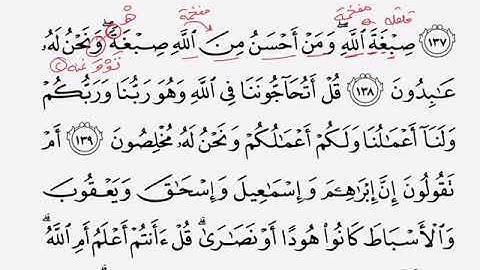 قلقله مفخمة مفخمة
١٣٧ صِبْغَةَ ٱللَّهِ وَمَنْ أَحْسَنُ مِنَ ٱللَّهِ صِبْغَةً وَنَحْنُ لَهُۥ
عَٰبِدُونَ ١٣٨ قُلْ أَتُحَآجُّونَنَا فِي ٱللَّهِ وَهُوَ رَبُّنَا وَرَبُّكُمْ
وَلَنَآ أَعْمَٰلُنَا وَلَكُمْ أَعْمَٰلُكُمْ وَنَحْنُ لَهُۥ مُخْلِصُونَ ١٣٩ أَمْ
تَقُولُونَ إِنَّ إِبْرَٰهِـۧمَ وَإِسْمَٰعِيلَ وَإِسْحَٰقَ وَيَعْقُوبَ
وَٱلْأَسْبَاطَ كَانُوا۟ هُودًا أَوْ نَصَٰرَىٰ ۗ قُلْ ءَأَنتُمْ أَعْلَمُ أَمِ ٱللَّهُ ۗ